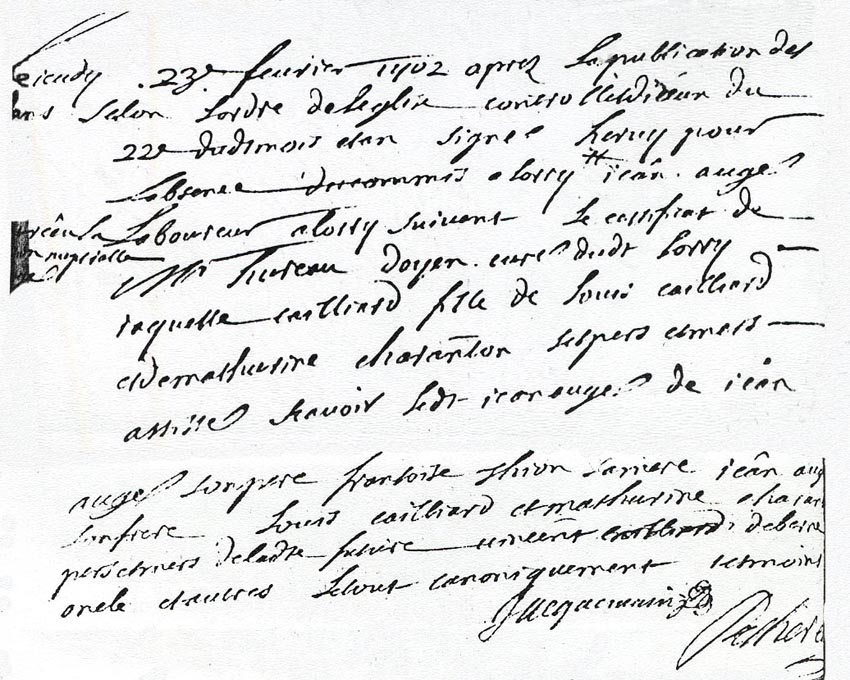 Le ieudy 23e feurier 1702 aprez la publication des
bans selon lordre de leglise controlle dudit iour du
22e dudt mois etan signe heruy pour
labsence du commis a lorry # iean augé
Laboureur a lorry suiuent le certificat de
Mr hureau doyen curé dudt lorry
iaquette cailliard fille de louis cailliard
et de mathurine charanton ses pers et mers
assisté scauoir ledt iean augé de iean
augé son pere francoise thion sa mere iean aug
son frere louis cailliard et mathurine charan
pers et mers de ladte future uincent cailliard
oncle et autres le tout canoniquement temoins
Jacquemain